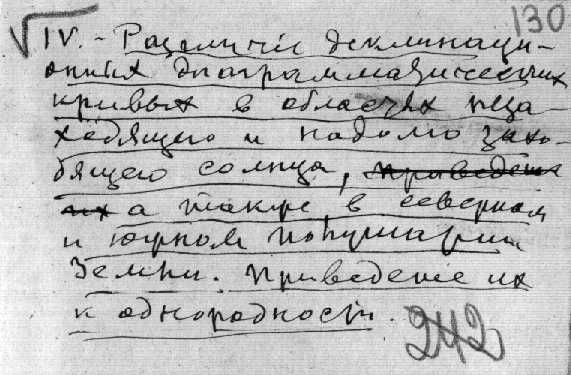 130
√IV. - Различие деклинаци-
онных диаграмматических
кривых в областях неза-
ходящего и надолго захо-
дящего солнца, приведение
их а также в северном
и южном полушарии
Земли. Приведение их
к однородности.
242